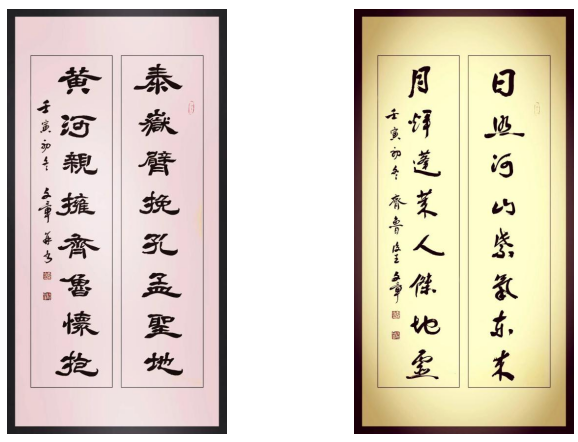 泰嶽臂挽孔孟聖地
黄河親擁齊魯懷抱
壬寅初冬 文章 并书
日照河山紫氣东来
月煇蓬莱人傑地靈
壬寅初冬 齊魯 文章